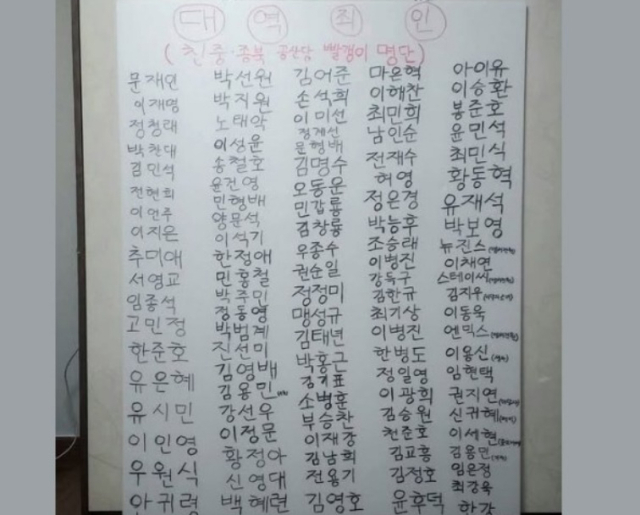 대 역 죄 인
(친중·종북 공산당 빨갱이 명단)
문재인
이재명
정청래
박찬대
김민석
전현희
이언주
이지은
추미애
서영교
임종석
고민정
한준호
유은혜
유시민
이인영
우원식
안귀령
박선원
박지원
노태악
이성윤
송철호
윤건영
민형배
양문석
이석기
한정애
민홍철
박주민
정동영
박범계
진선미
김영배
김용민
강선우
이정문
황정아
신영대
백혜련
김어준
손석희
이미선
정계선
문형배
김명수
오동운
민갑룡
김창룡
우종수
권순일
정정미
맹성규
김태년
박홍근
김기표
소병훈
부승찬
이재강
김남희
전용기
김영호
마은혁
이해찬
최민희
남인순
전재수
허영
정은경
박능후
조승래
이병진
강득구
김한규
최기상
이병진
한병도
정일영
이광희
김승원
천준호
김교흥
김정호
윤후덕
아이유
이승환
봉준호
윤민석
최민식
황동혁
유재석
박보영
뉴진스
이채연
스테이씨
김지우
이동욱
엔믹스
이용신
임현택
권지연
신귀혜
이서현
김용민
임은정
최강욱
한강